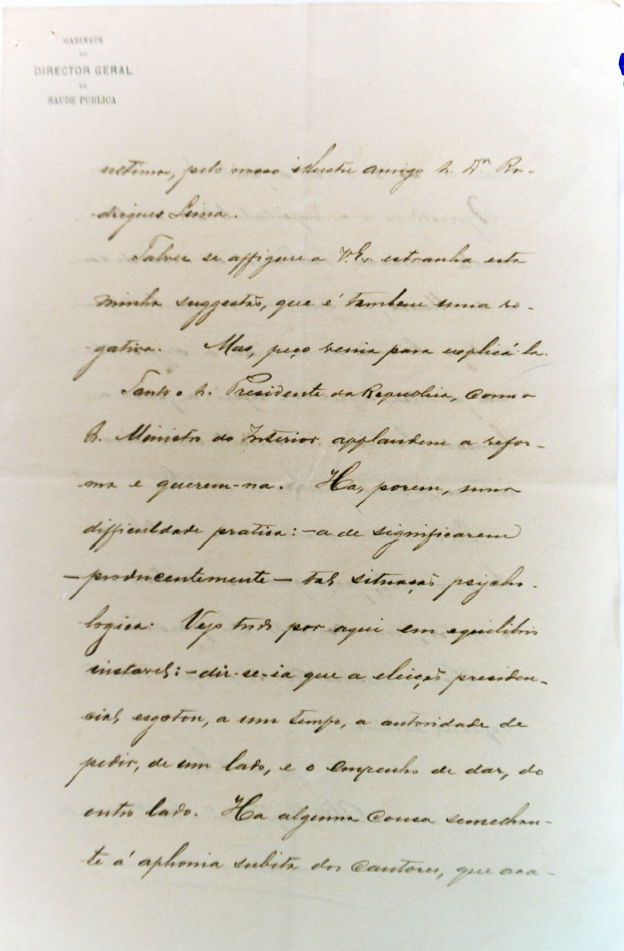 GABINETE
DO
DIRECTOR GERAL
DA
SAUDE PUBLICA
ultima, pelo nosso illustre amigo Sr. Dr. Ro-
drigues Lima.
Talvez se affigure a V. Ex. estranha esta
minha suggestão, que é tambem uma ro-
gativa. Mas, peço venia para explicá-la.
Tanto o Sr. Presidente da Republica, como o
Sr. Ministro do Interior applaudem a refor-
ma e querem-na. Ha, porem, uma
difficuldade pratica: - a de significarem
- producentemente - tal situação psycho-
logica. Vejo tudo por aqui em equilibrio
instavel: - dir-se-ia que a eleição presiden-
cial esgotou, a um tempo, a autoridade de
pedir, de um lado, e o empenho de dar, do
outro lado. Ha alguma cousa semelhan-
te á aphonia subita dos cantores, que aca-